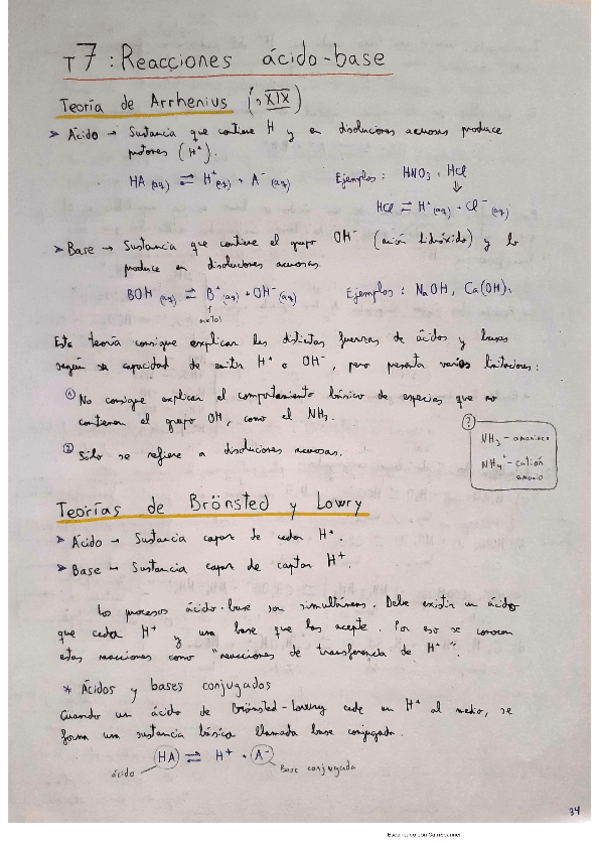 T7: Reacciones ácido-base
Teoría de Arrhenius (s XIX)
➤ Ácido → Sustancia que contiene H y en disoluciones acuosas produce
protones (H⁺).
HA (aq) ⇌ H⁺(aq) + A⁻(aq) Ejemplos: HNO₃, HCl
↓
HCl ⇌ H⁺(aq) + Cl⁻(aq)
➤ Base → Sustancia que contiene el grupo OH⁻ (anión hidróxido) y lo
produce en disoluciones acuosas.
BOH (aq) ⇌ B⁺(aq) + OH⁻(aq) Ejemplos: NaOH, Ca(OH)₂
metal
Esta teoría consigue explicar las distintas fuerzas de ácidos y bases
según su capacidad de emitir H⁺ o OH⁻, pero presenta varias limitaciones:
① No consigue explicar el comportamiento básico de especies que no
contienen el grupo OH, como el NH₃.
② Sólo se refiere a disoluciones acuosas.
?
NH₃ - amoniaco
NH₄⁺ - catión
amonio
Teorías de Brönsted y Lowry
➤ Ácido → Sustancia capaz de ceder H⁺.
➤ Base → Sustancia capaz de captar H⁺.
Los procesos ácido-base son simultáneos. Debe existir un ácido
que ceda H⁺ y una base que los acepte. Por eso se conocen
estas reacciones como "reacciones de transferencia de H⁺".
* Ácidos y bases conjugados
Cuando un ácido de Brönsted-Lowry cede un H⁺ al medio, se
forma una sustancia básica llamada base conjugada.
HA ⇌ H⁺ + A⁻
ácido Base conjugada
34
Escaneado con CamScanner